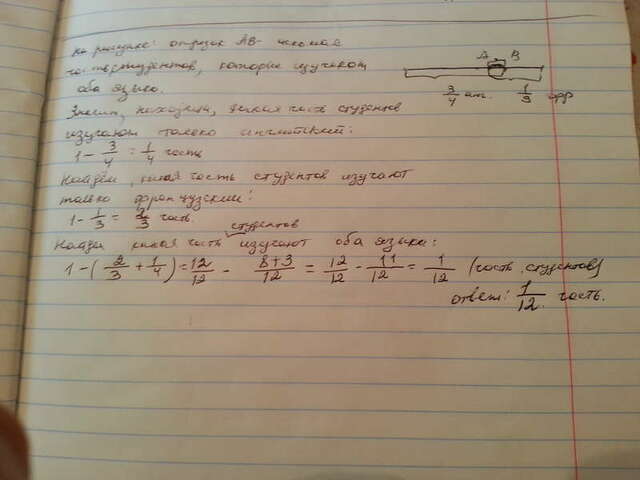 На рисунке: отрезок АВ- искомая
часть студентов, которые изучают
оба языка.
А В
3/4 анг. 1/3 фр
Значит, находим, какая часть студентов
изучают только английский:
1 - 3/4 = 1/4 часть
Найдём, какая часть студентов изучают
только французский:
1 - 1/3 = 2/3 часть.
студентов
Найдём какая часть изучают оба языка:
1 - (2/3 + 1/4) = 12/12 - 8+3/12 = 12/12 - 11/12 = 1/12 (часть студентов)
ответ: 1/12 часть.